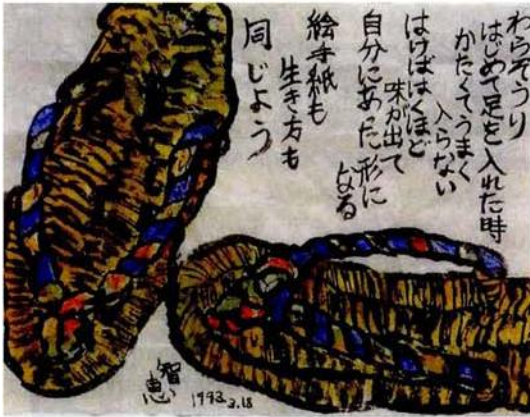 わらぞうり
はじめて足を入れた時
かたくてうまく
入らない
はけばはくほど
味が出て
自分にあった形に
なる
絵手紙も
生き方も
同じよう
智恵
1993.3.18